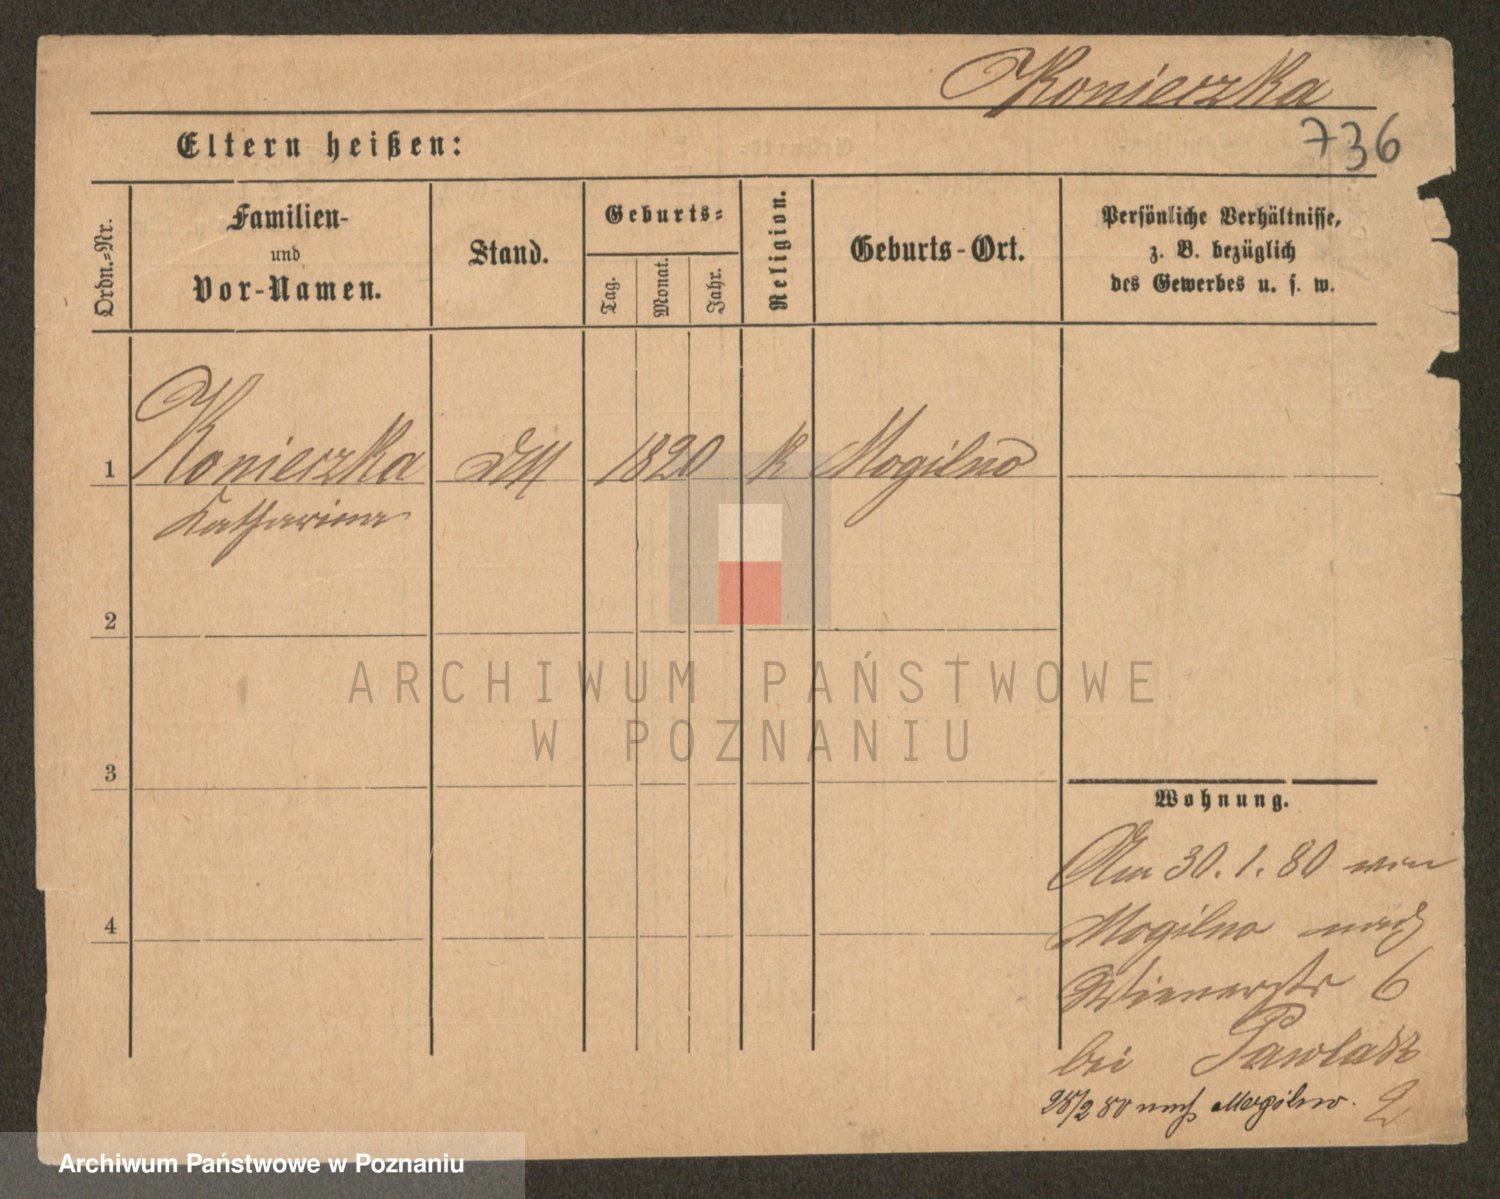 Konieczka
736
Eltern heißen:
Ordn.=Nr.
Familien-
und
Vor-Namen.
Stand.
Geburts=
Tag.
Monat.
Jahr.
Religion.
Geburts-Ort.
Persönliche Verhältnisse,
z. B. bezüglich
des Gewerbes u. s. w.
1 Konieczka 1820 k Mogilno
Katharina
2
3
4
Wohnung.
Am 30.1.80 von
Mogilno nach
Wienerstr 6
bei
28/2 80 nach Mogilno.
ARCHIWUM PAŃSTWOWE
W POZNANIU
Archiwum Państwowe w Poznaniu